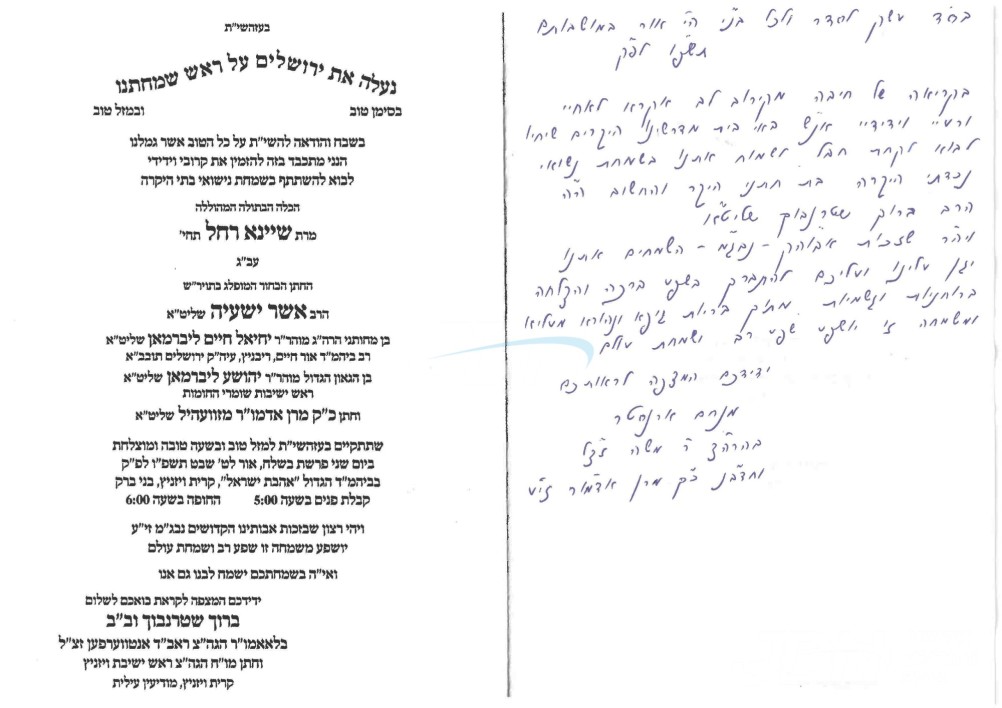 בעזהשי"ת
נעלה את ירושלים על ראש שמחתנו
בסימן טוב ובמזל טוב
בשבח והודאה להשי"ת על כל הטוב אשר גמלנו
הנני מתכבד בזה להזמין את קרובי וידידי
לבוא להשתתף בשמחת נישואי בתי היקרה
הכלה הבתולה המהוללה
מרת שיינא רחל תחי'
עב"ג
החתן הבחור המופלג בתויר"ש
הרב אשר ישעיה שליט"א
בן מחותני הרה"ג מוהר"ר יחיאל חיים ליברמאן שליט"א
רב ביהמ"ד אור חיים, ריבניץ, עיה"ק ירושלים תובב"א
בן הגאון הגדול מוהר"ר יהושע ליברמאן שליט"א
ראש ישיבות שומרי החומות
וחתן כ"ק מרן אדמו"ר מזוועהיל שליט"א
שתתקיים בעזהשי"ת למזל טוב ובשעה טובה ומוצלחת
ביום שני פרשת בשלח, אור לט' שבט תשפ"ו לפ"ק
בביהמ"ד הגדול "אהבת ישראל", קרית ויזניץ, בני ברק
קבלת פנים בשעה 5:00 החופה בשעה 6:00
ויהי רצון שבזכות אבותינו הקדושים נבג"מ זי"ע
יושפע משמחה זו שפע רב ושמחת עולם
ואי"ה בשמחתכם ישמח לבנו גם אנו
ידידכם המצפה לקראת בואכם לשלום
ברוך שטרנבוך וב"ב
בלאאמו"ר הגה"צ ראב"ד אנטווערפען זצ"ל
וחתן מו"ח הגה"צ ראש ישיבת ויזניץ
קרית ויזניץ, מודיעין עילית
לסדר ולכל בני אור במושבותם
תשפ"ו לפ"ק
בקריאה של חיבה מקירוב לב אקרא לאחיי
ורעיי וידידיי אנ"ש באי בית מדרשינו היקרים שיחיו
לבוא לקחת חבל לשמוח אתנו בשמחת נשואי
נכדתי היקרה בת חתני היקר והחשוב
הרב ברוך שטרנבוך שליט"א
ויה"ר שזכות - נבג"מ - השמחים אתנו
יגן עלינו ועליכם להתברך בשפע ברכה והצלחה
ברוחניות וגשמיות מתוך בריות גופא ונהורא מעליא
ומשמחה זו יושפע שפע רב ושמחת עולם
ידידכם המצפה לראותכם
מנחם ארנסטר
בהרה"צ ר' משה זצ"ל
כ"ק מרן אדמו"ר זי"ע